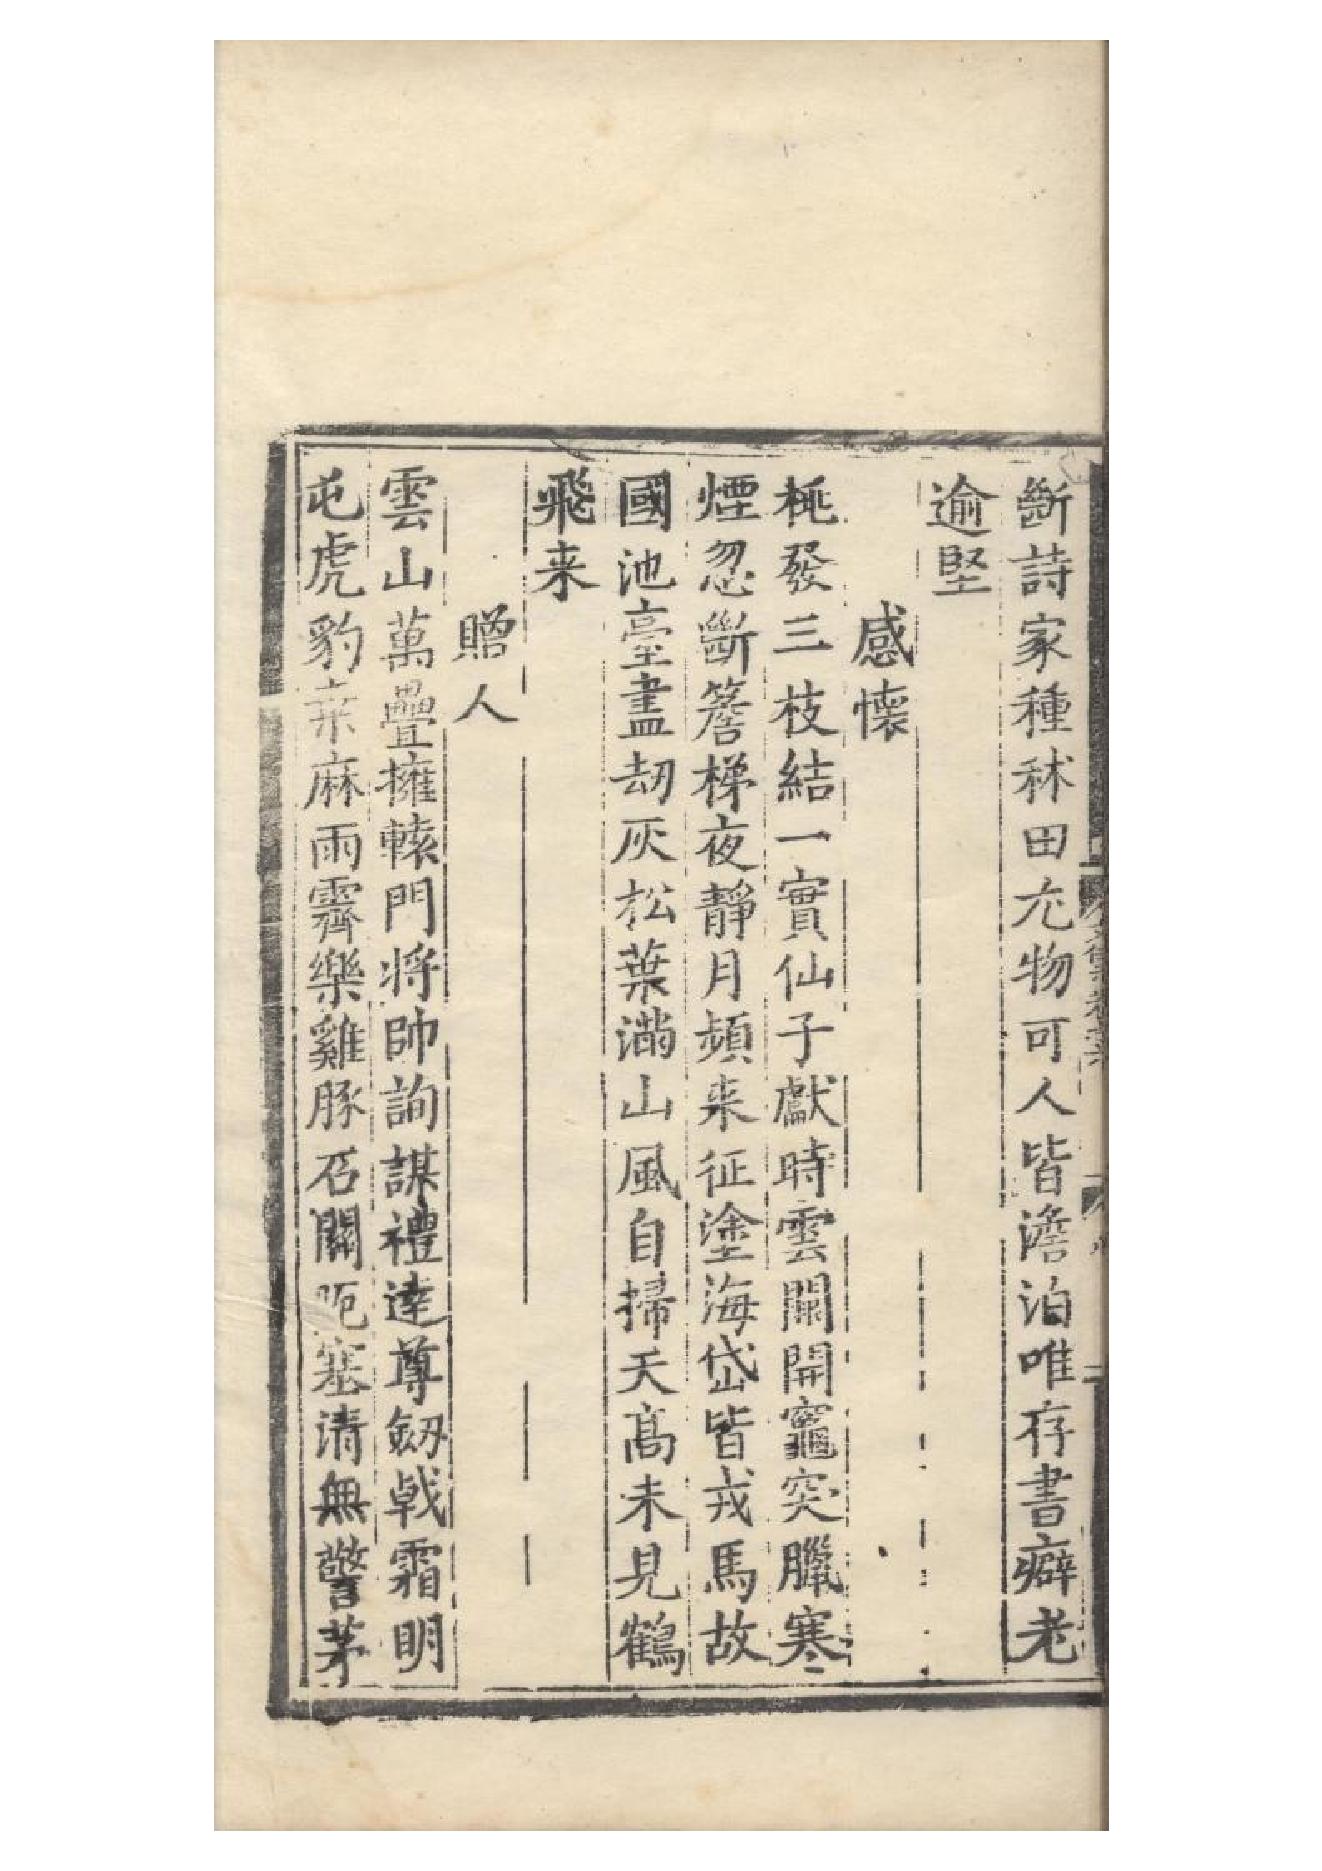 斷詩家種秫田尤物可人皆澹泊唯存書癖老
逾堅
感懷
桃發三枝結一實仙子獻時雲關開竈突臘寒
煙忽斷簷梯夜靜月頻来征塗海岱皆戎馬故
國池臺盡劫灰松葉滿山風自掃天高未見鶴
飛来
贈人
雲山萬疊擁轅門將帥詢謀禮達尊劔戟霜明
屯虎豹桒麻雨霽樂雞豚石關阨塞清無警茅